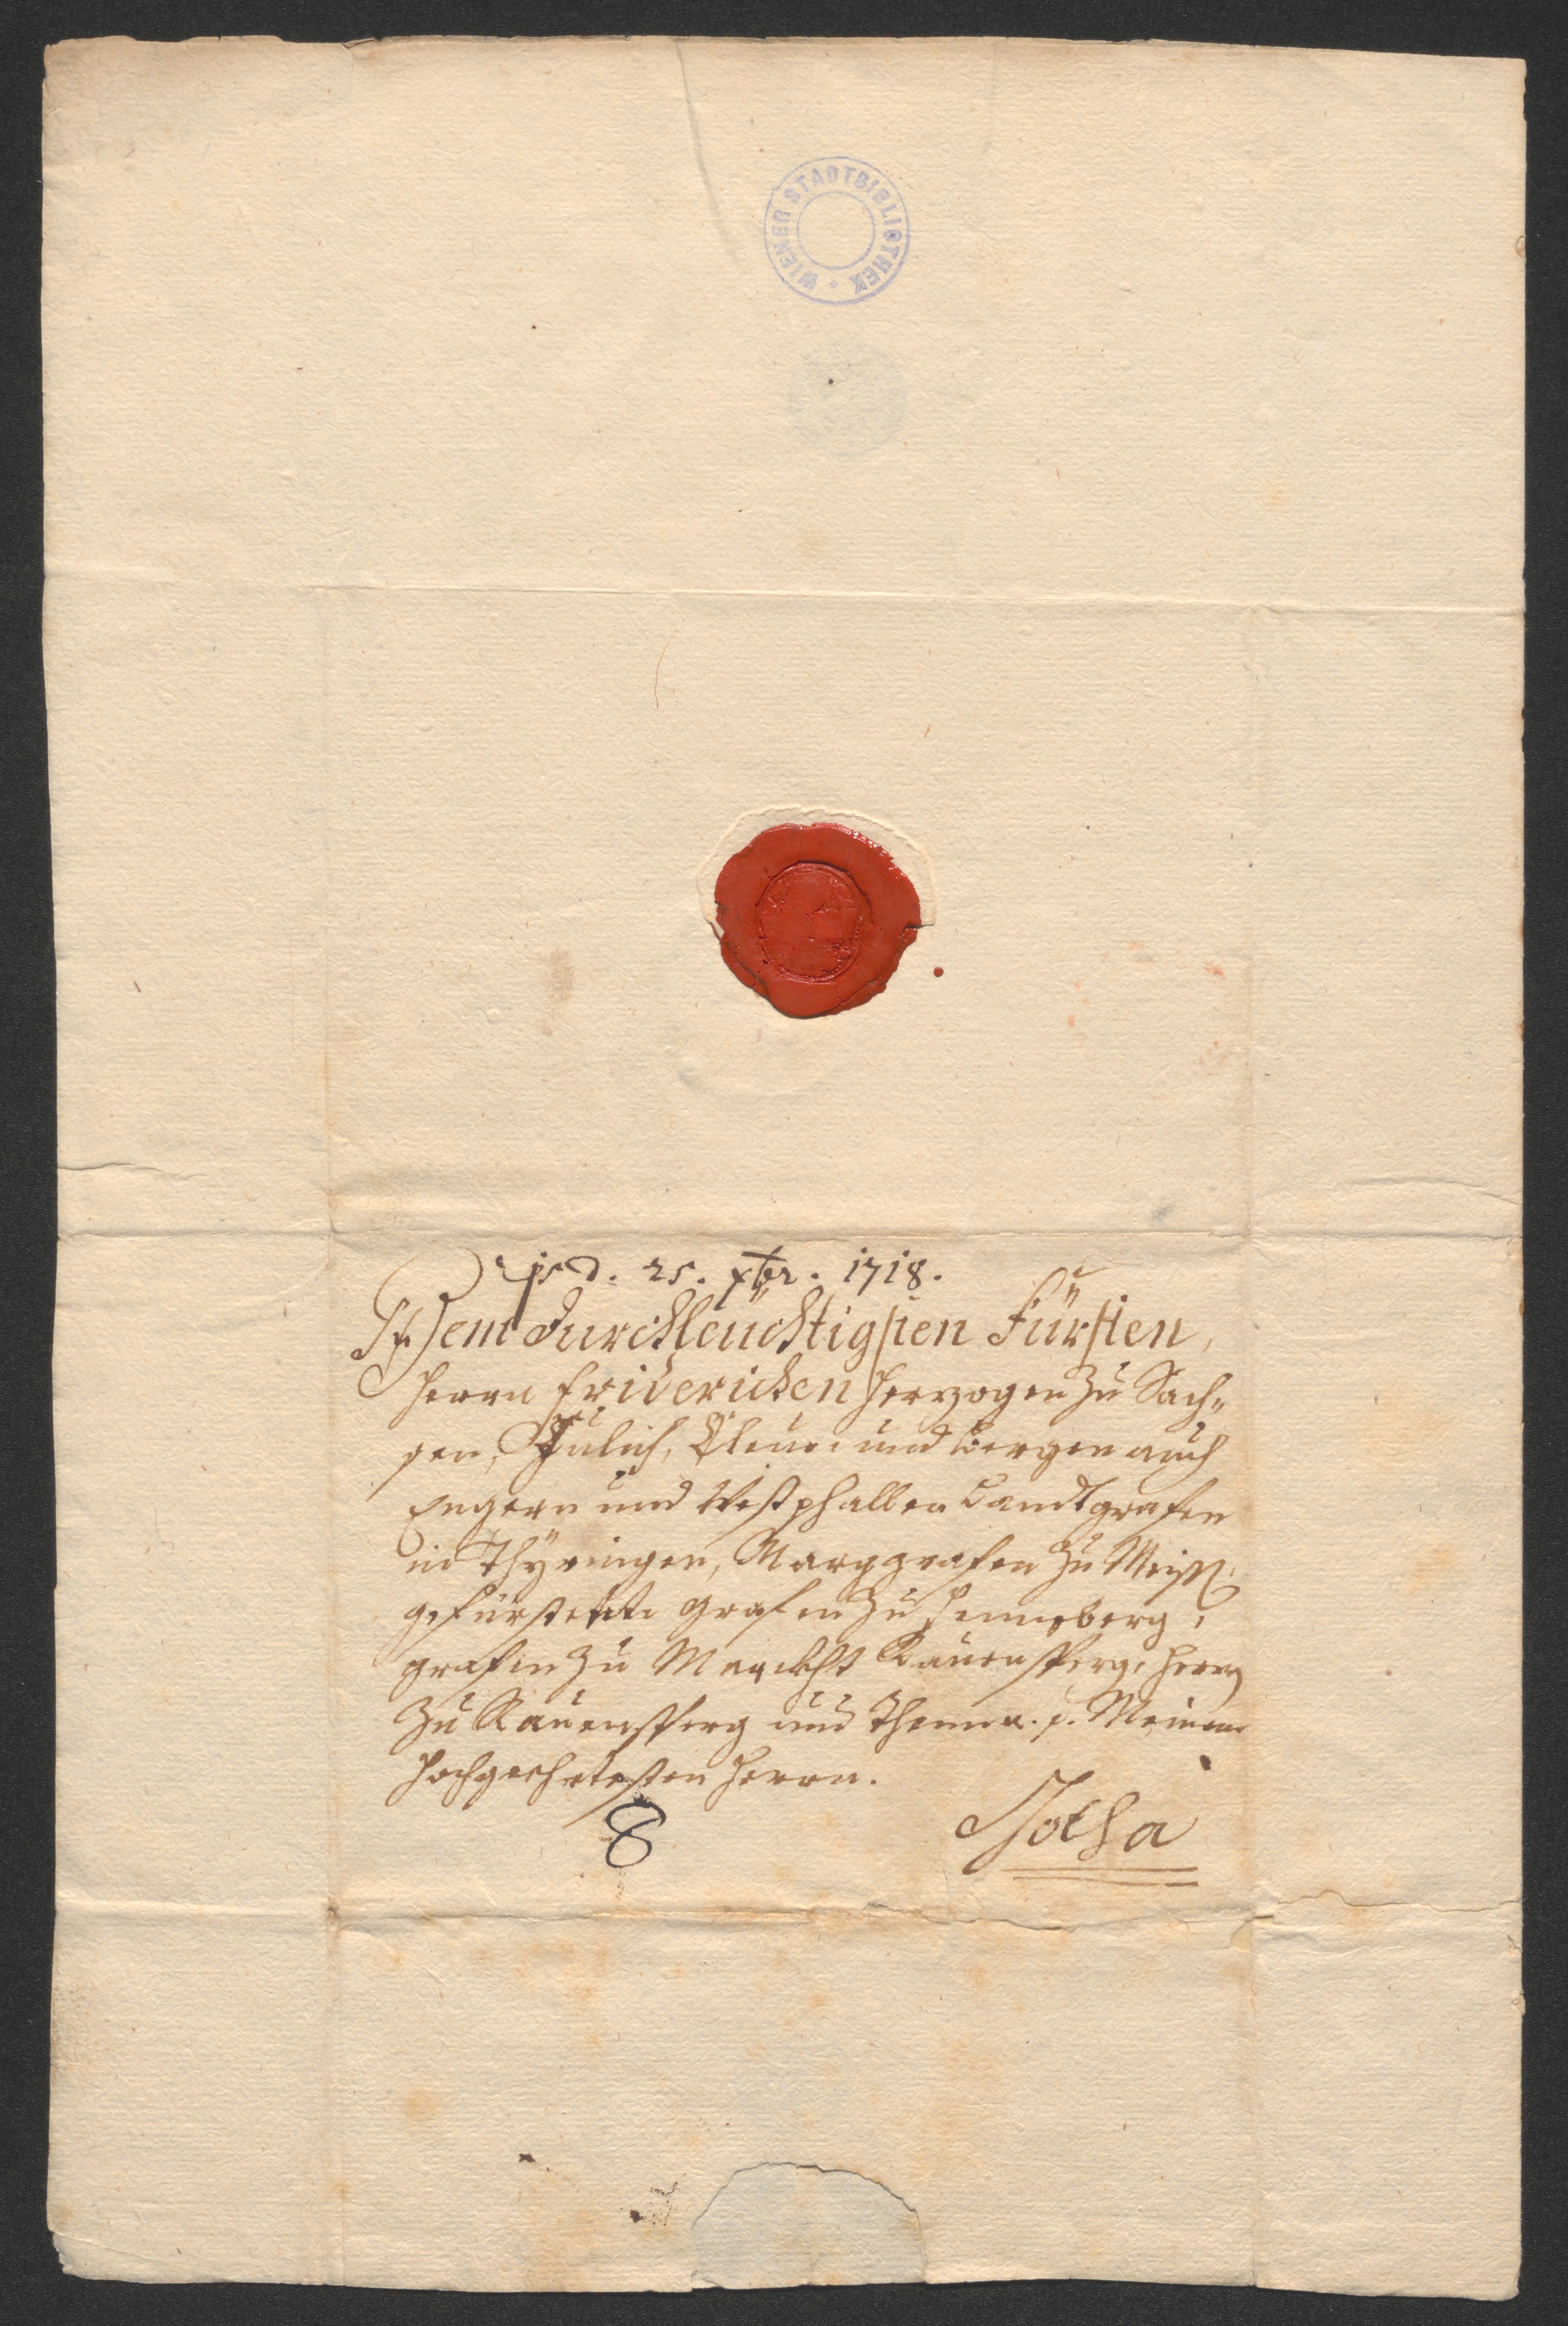 WIENER STADTBIBLIOTHEK
d. 25. xbr. 1718.
Dem durchleüchtigsten Fürsten,
Herrn Friderichen Herzogen zu Sach„
sen, Jülich, Cleve und Bergen auch
Engern und Westphallen Landtgrafen
in Thyringen, Marggrafen zu Meiss:
gefürsteten Grafen zu Henneberg,
Grafen zu Marckht Rauensperg, Herrn
zu Rauenstein und Thonna. p. Meinem
hochgeehrtesten Herrn.
8
Gotha